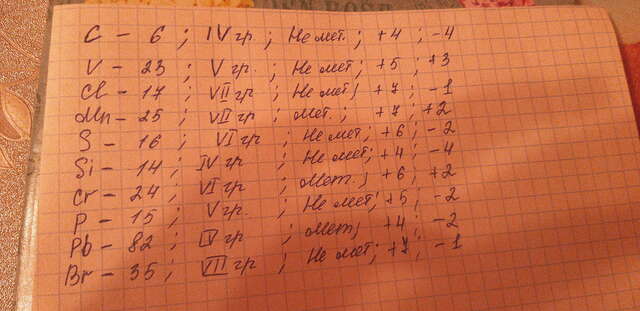 C – 6 ; IV гр ; Не мет ; +4 ; -4
V – 23 ; V гр. ; Не мет ; +5 ; +3
Cl – 17 ; VII гр ; Не мет ; +7 ; -1
Mn – 25 ; VII гр ; мет ; +7 ; +2
S – 16 ; VI гр ; Не мет ; +6 ; -2
Si – 14 ; IV гр ; Не мет ; +4 ; -4
Cr – 24 ; VI гр ; мет ; +6 ; +2
P – 15 ; V гр. ; Не мет ; +5 ; -2
Pb – 82 ; IV гр ; мет ; +4 ; -2
Br – 35 ; VII гр ; Не мет ; +7 ; -1